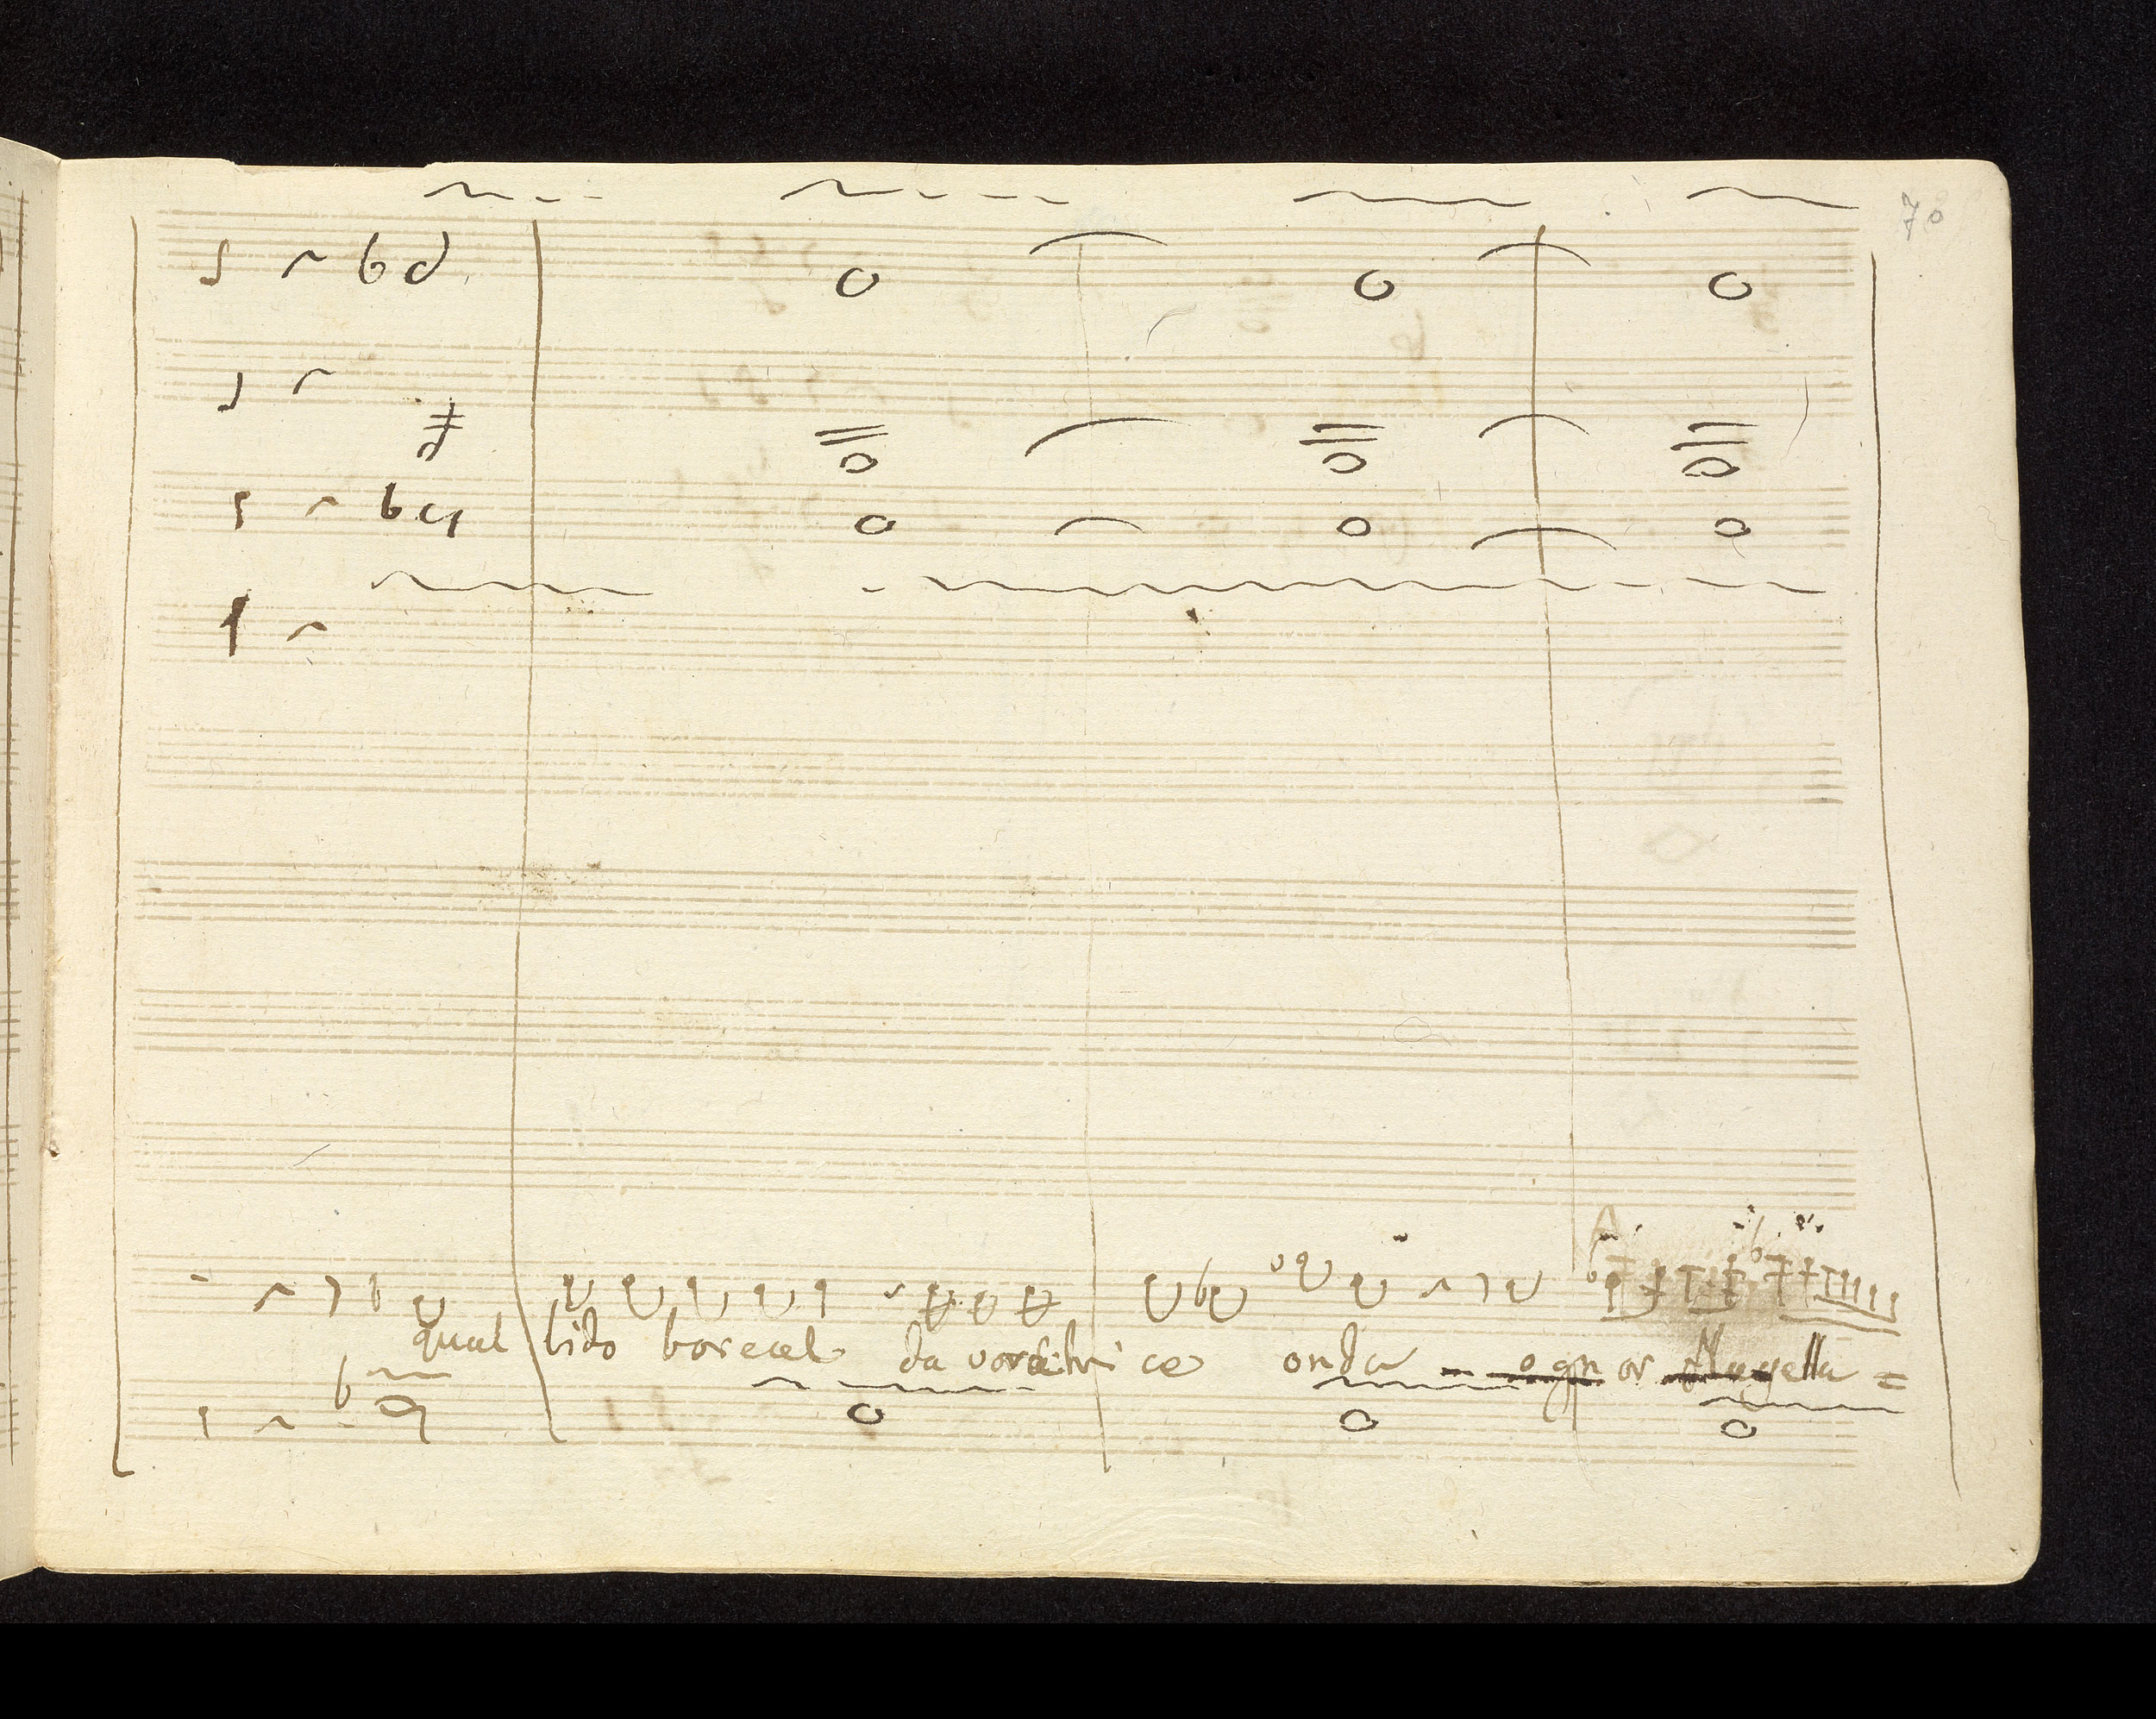 70
qual lido boreal da voratrice onda ognor flagella =